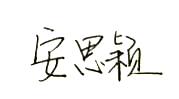 安思颖